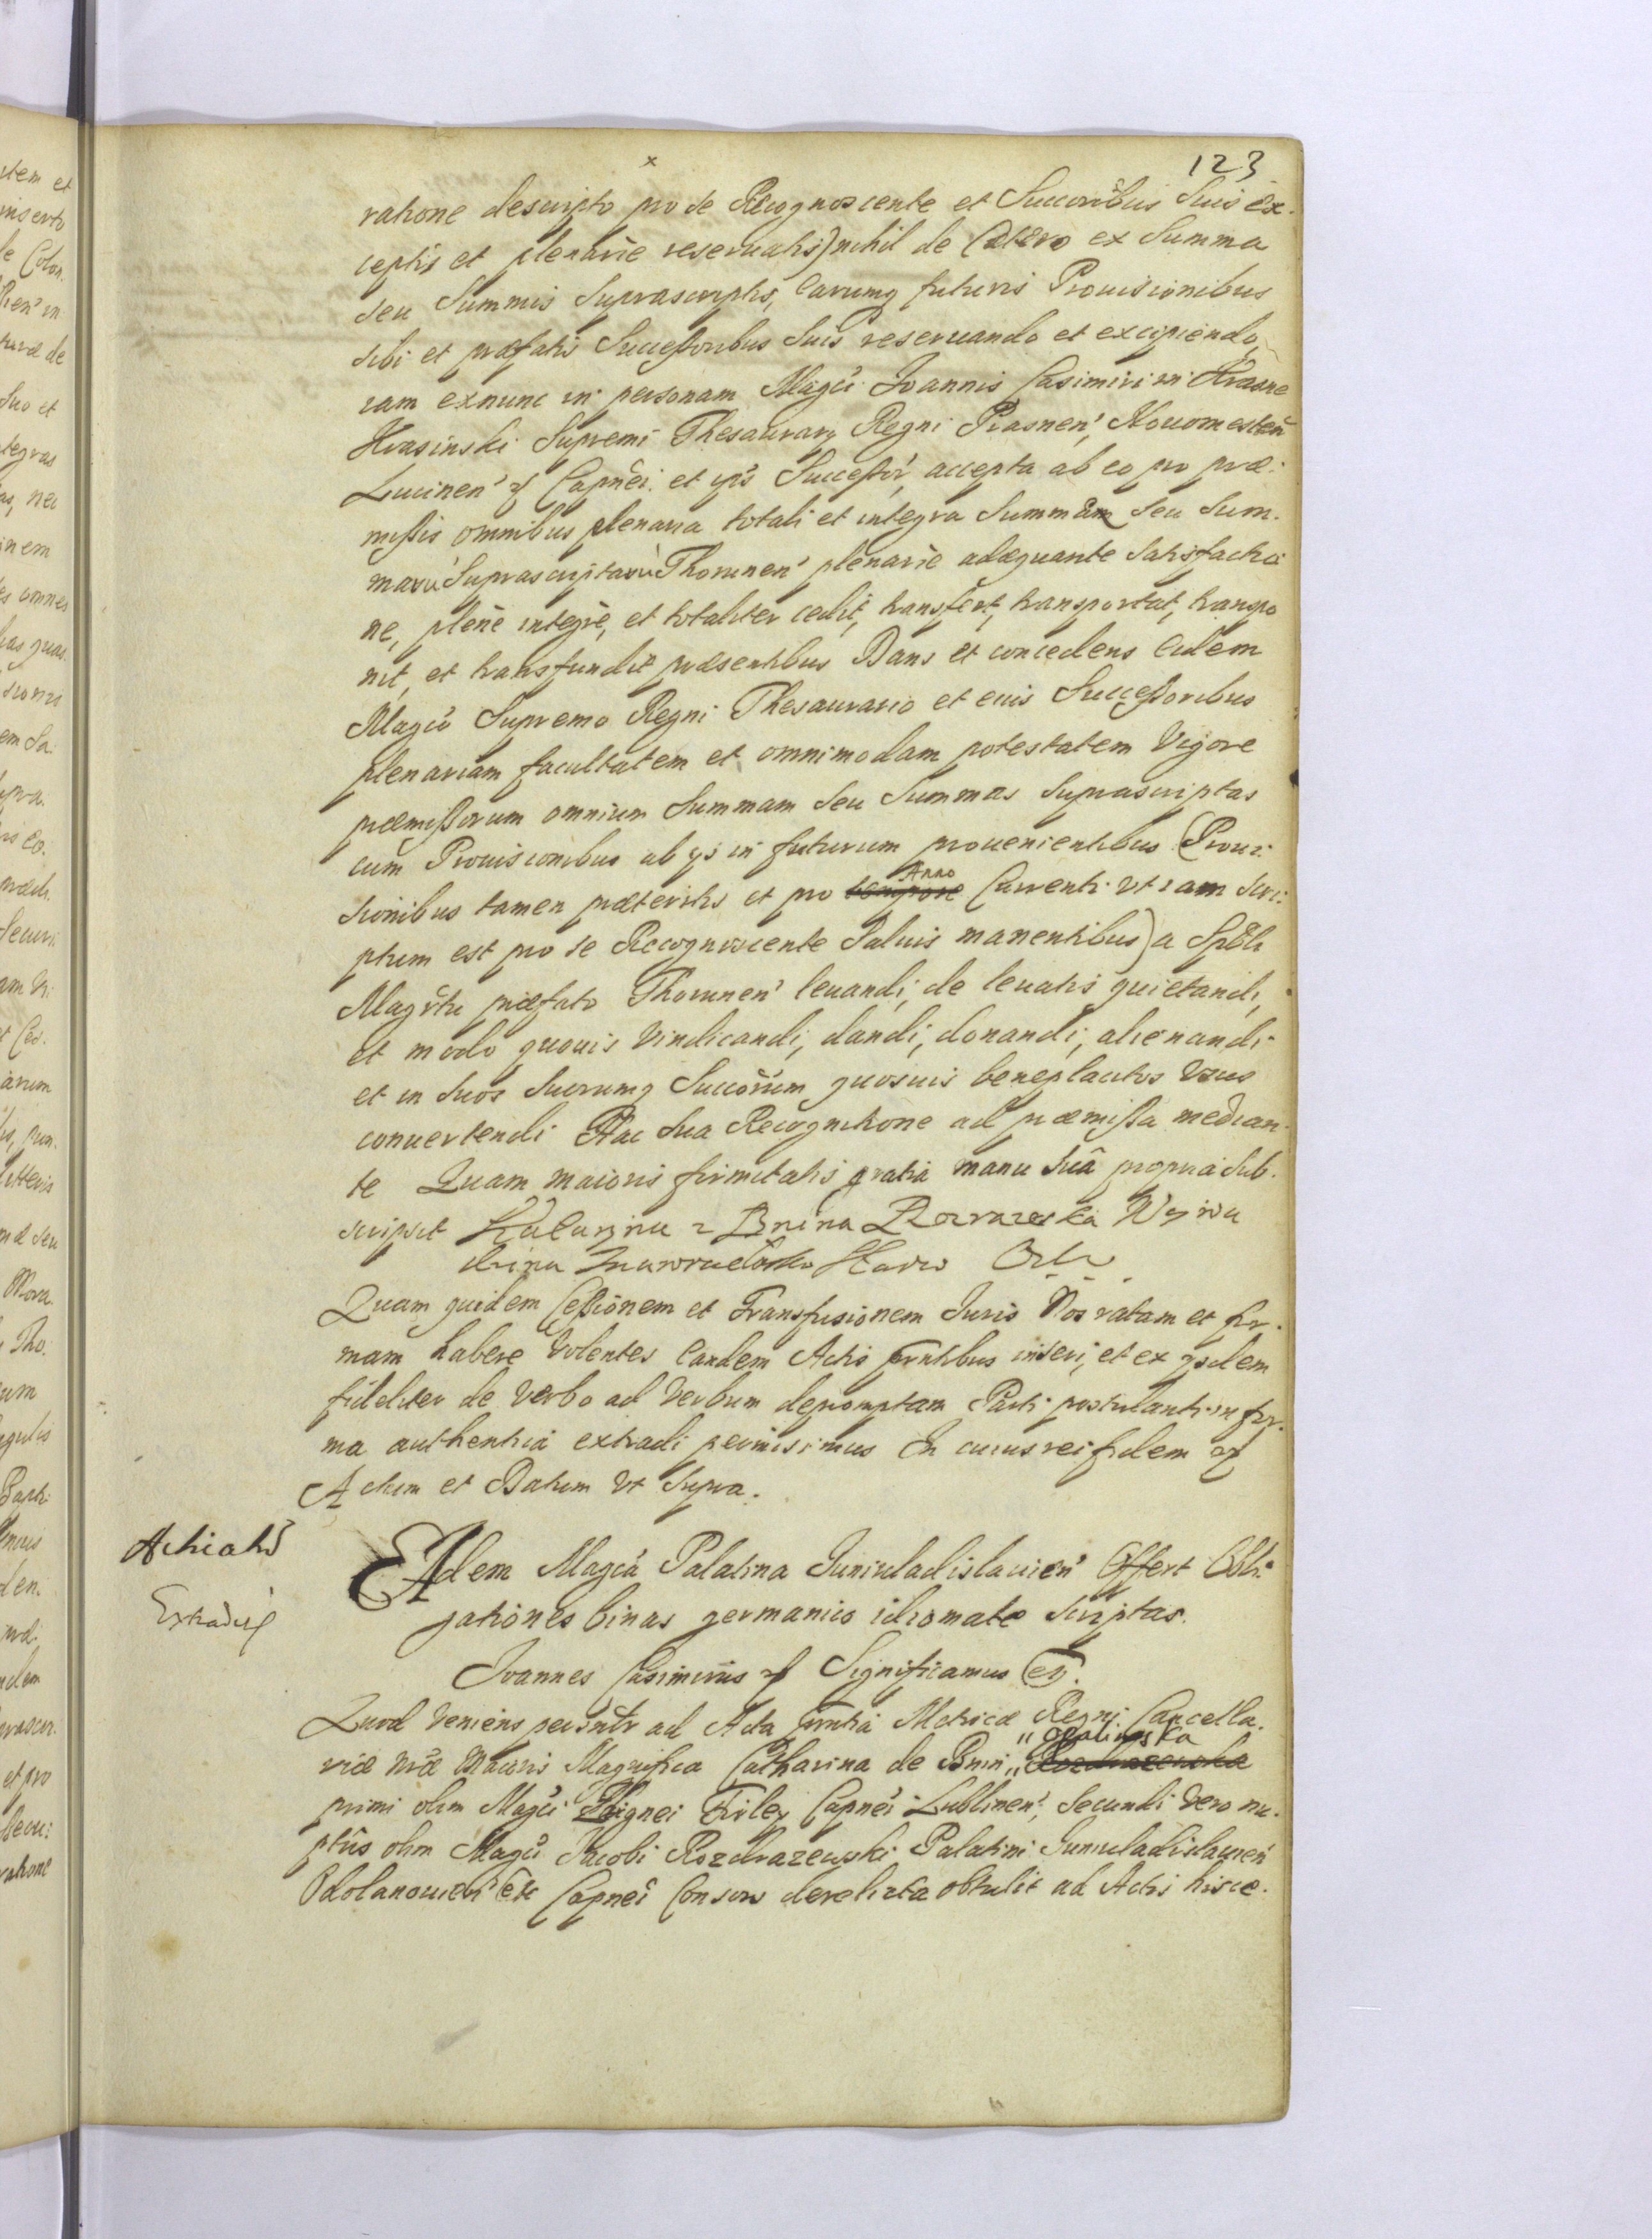 123
x
ratione descripto pro se Recognoscente et Succoribus Suis ex-
ceptis et plenarie reseruatis) nihil de Cætero ex Summa
seu Summis Suprascriptis, earumq futuris Prouisionibus
sibi et præfatis Successoribus Suis reseruando et excipiendo,
iam exnunc in personam Magci Ioannis Casimiri in Krasne
Krasinski Supremi Thesaurarij Regni Prasnen', Nouomesten'
Lucinen' & Capnei. et ips Successor', accepta ab eo pro præ-
missis omnibus plenaria totali et integra Summam Seu Sum-
marū Suprascriptarū Thorunen' plenarie adæquante Satisfactio
ne, plene integre, et totaliter cedit, transfert, transportat, transpo
nit, et transfundit præsentibus Dans et concedens Eidem
Magco Supremo Regni Thesaurario et eius Successoribus
plenariam facultatem et omnimodam potestatem Vigore
præmissorum omnium Summam Seu Summas Suprascriptas
cum Prouisionibus ab ijs in futurum prouenientibus (Proui-
sionibus tamen præteritis et pro tempore Anno Currenti Vt iam Scri-
ptum est pro se Recognoscente Saluis manentibus) a Spbli
Magrtu præfato Thorunen' leuandi, de leuatis quietandi,
et modo quouis Vindicandi, dandi, donandi, alienandi
et in Suos Suorumq Succorum quosuis beneplacitos Vsus
conuertendi Hac Sua Recognitione ad præmissa median-
te Quam maioris firmitatis gratia manu Suâ propria Sub-
scripsit Katarzyna z Bnina Rozrazeska Woiwo
Quam quidem Cessionem et Transfusionem Iuris Nos ratam et fir-
mam habere Volentes Eandem Actis prntibus inseri, et ex ijsdem
fideliter de Verbo ad Verbum depromptam Parti postulanti in for-
ma authentica extradi permisimus In cuius rei fidem &
Actum et Datum Vt Supra.
Acticatio
EAdem Magca Palatina Iuniuladislauien' Offert Obli-
gationes binas germanico idiomate Scriptas.
Ioannes Casimirus & Significamus &.
Quod Veniens persnlr ad Acta prntia Metricæ Regni Cancella-
riæ nræ Maioris Magnifica Catharina de Bnin " Rozdrazewska " Opalinska
primi olim Magci Zbignei Firley Capnei Lublinen', Secundi Vero nu-
ptiis olim Magci Iacobi Rozdrazewski Palatini Iuniuladislauien'
Odolanouien' etc Capnei Consors derelicta obtulit ad Actis hisce